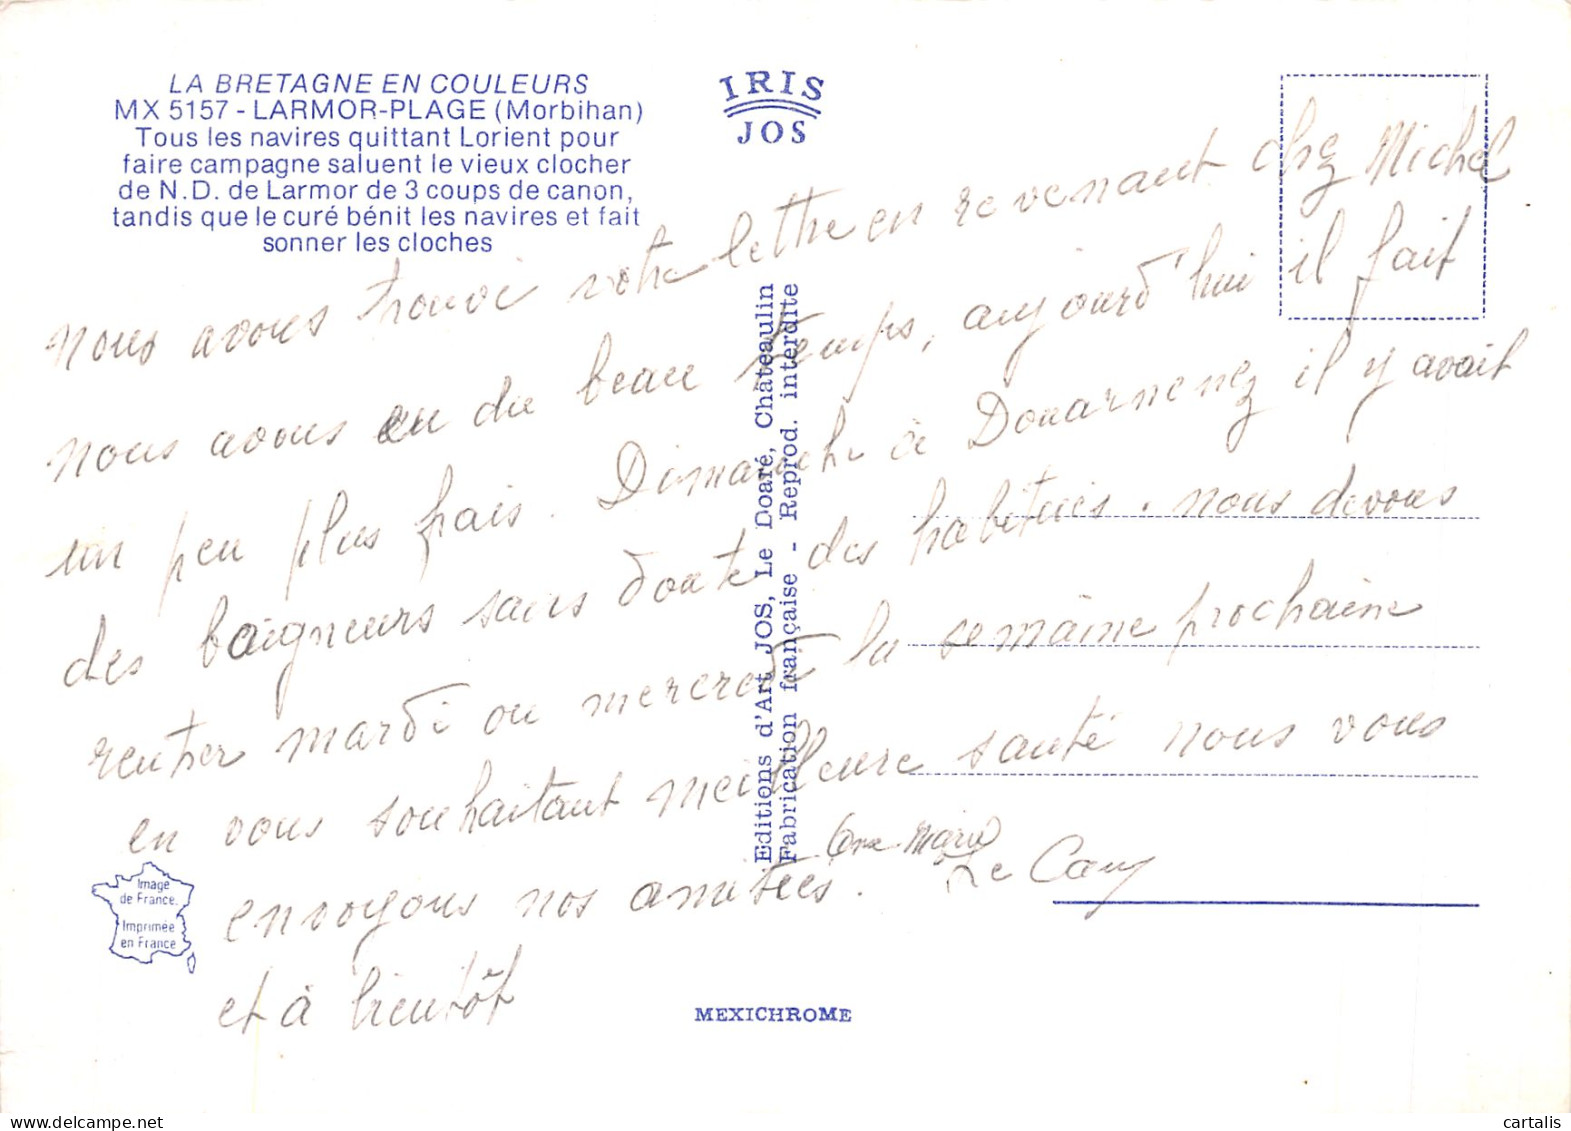 LA BRETAGNE EN COULEURS
MX 5157 - LARMOR-PLAGE (Morbihan)
Tous les navires quittant Lorient pour
faire campagne saluent le vieux clocher
de N.D. de Larmor de 3 coups de canon,
tandis que le curé bénit les navires et fait
sonner les cloches
IRIS
JOS
nous avons trouvé votre lettre en revenant chez Michel
nous avons eu du beau temps, aujourd'hui il fait
un peu plus frais. Dimanche à Douarnenez il y avait
des baigneurs sans doute des habitués. nous devons
rentrer mardi ou mercredi la semaine prochaine
en vous souhaitant meilleure santé nous vous
envoyons nos amitiés. Marie
Le
et à bientôt
Editions d'Art JOS, Le Doaré, Châteaulin
Fabrication française - Reprod. interdite
Image
de France.
Imprimée
en France
MEXICHROME
cartalis